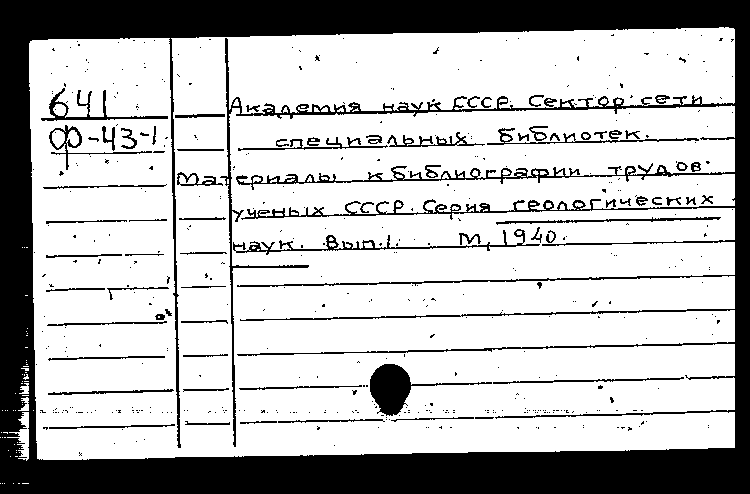 641
Ф-43-1
Академия наук СССР. Сектор сети
специальных библиотек.
Материалы к библиографии трудов
ученых СССР. Серия геологических
наук. Вып.1. М, 1940.